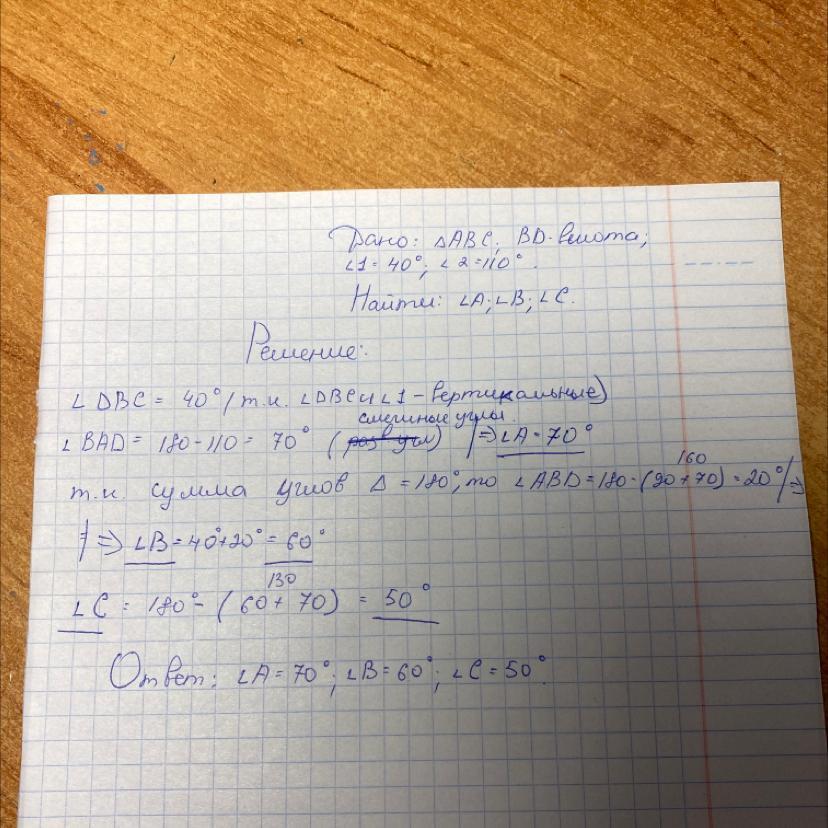 Дано: △ABC; BD-высота;
∠1=40°; ∠2=110°.
Найти: ∠A; ∠B; ∠C.
Решение:
∠DBC = 40° (т.к. ∠DBC и ∠1 - вертикальные)
смежные углы.
∠BAD = 180-110 = 70° ( ) ⇒ ∠A = 70°
160
т.к. сумма углов △ = 180°, то ∠ABD = 180-(90+70) = 20° ⇒
⇒ ∠B = 40°+20° = 60°
130
∠C = 180° - (60+70) = 50°
Ответ: ∠A = 70°; ∠B = 60°; ∠C = 50°.